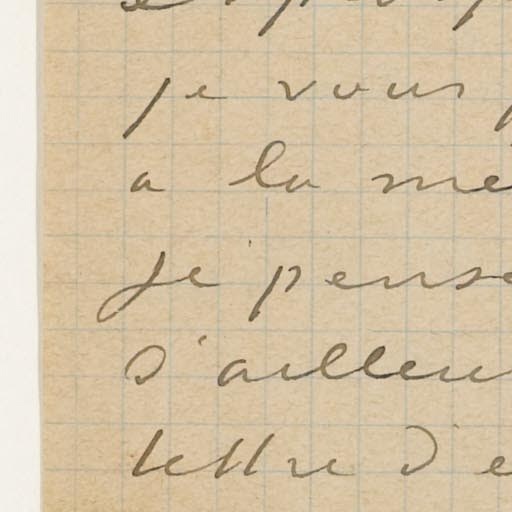 je vous
a la me
je pense
d'ailleu
lettre d'e